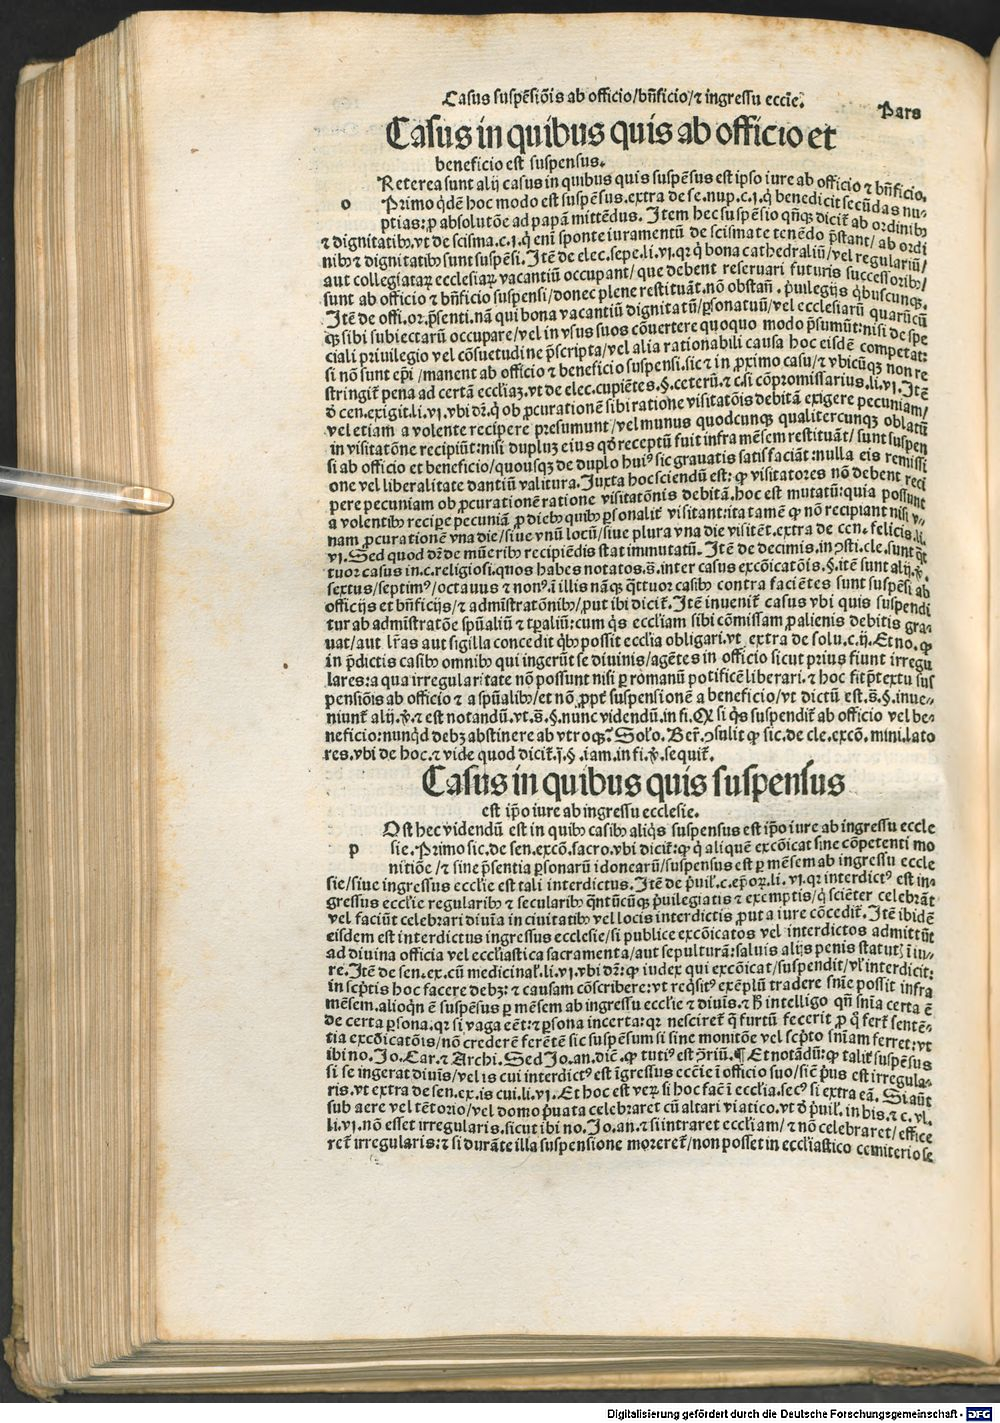 Casus suspēsiōis ab officio/bn̄ficio/⁊ ingressu eccīe.
Pars
Casus in quibus quis ab officio et
beneficio est suspensus.
Reterea sunt alij casus in quibus quis suspēsus est ipso iure ab officio ⁊ bn̄ficio.
o Primo qdē hoc modo est suspēsus. extra de se. nup. c. j. q̇ benedicit secūdas nu-
ptias: ꝓ absolutōe ad papā mittēdus. Item hec suspēsio qn̄qꝫ dicit̄ ab ordinibꝫ
⁊ dignitatibꝫ. vt de scisma. c. j. q̇ eni sponte iuramentū de scismate tenēdo p̄stant/ab ordi
nibꝫ ⁊ dignitatibꝫ sunt suspēsi. Itē de elec. sepe. li. vi. qꝛ q̇ bona cathedraliū/vel regulariū/
aut collegiataꝝ ecclesiaꝝ vacantiū occupant/que debent reseruari futuris successoribꝫ/
sunt ab officio ⁊ bn̄ficio suspensi/donec plene restituāt. nō obstan̄. p̄uilegijs qbuscunqꝫ.
Itē de offi. or. p̄senti. nā qui bona vacantiū dignitatū/ꝑsonatuū/vel ecclesiarū quarūcū
qꝫ sibi subiectarū occupare/vel in vsus suos cōuertere quoquo modo p̄sumūt: nisi de spe
ciali priuilegio vel cōsuetudine p̄scripta/vel alia rationabili causa hoc eisdē competat:
si nō sunt ep̄i/manent ab officio ⁊ beneficio suspensi. sic ⁊ in ꝓximo casu/⁊ vbicūqꝫ non re
stringit̄ pena ad certā eccliaꝫ. vt de elec. cupiētes. §. ceterū. ⁊ c. si cōpromissarius. li. vi. Itē
d̄ cen. exigit. li. vi. vbi dꝛ. q̇ ob ꝓcurationē sibi ratione visitatōis debitā exigere pecuniam/
vel etiam a volente recipere presumunt/vel munus quodcunqꝫ qualitercunqꝫ oblatū
in visitatōne recipiūt: nisi dupluꝫ eius qd̄ receptū fuit infra mēsem restituāt/sunt suspen
si ab officio et beneficio/quousqꝫ de duplo huiꝰ sic grauatis satisfaciāt: nulla eis remissi
one vel liberalitate dantiū valitura. Juxta hoc sciendū est: ꝙ visitatores nō debent reci
pere pecuniam ob ꝓcurationē ratione visitatōnis debitā. hoc est mutatū: quia possunt
a volentibꝫ recipere pecuniā ꝓ diebꝫ quibꝫ ꝑsonalit̄ visitant: ita tamē ꝙ nō recipiant nisi v-
nam ꝓcurationē vna die/siue vnū locū/siue plura vna die visitēt. extra de cen. felicis. li.
vi. Sed quod dꝛ de mūeribꝫ recipiēdis stat immutatū. Itē de decimis. in ꝯsti. cle. sunt q̄t
tuor casus in. c. religiosi. quos habes notatos. s̄. inter casus excōicatōis. §. itē sunt alij. ꝟ.
sextus/septimꝰ/octauus ⁊ nonꝰ. i illis nāqꝫ q̄ttuor casibꝫ contra faciētes sunt suspēsi ab
officijs et bn̄ficijs/⁊ administratōnibꝫ/ꝓut ibi dicit̄. Itē inuenit̄ casus vbi quis suspendi
tur ab admistratōe spūaliū ⁊ tꝑaliū: cum q̇s eccliam sibi cōmissam ꝓ alienis debitis gra-
uat/aut lr̄as aut sigilla concedit q̇bꝫ possit ecclia obligari. vt extra de solu. c. ij. Et no. ꝙ
in p̄dictis casibꝫ omnibꝫ qui ingerūt se diuinis/agētes in officio sicut prius fiunt irregu
lares: a qua irregularitate nō possunt nisi ꝑ romanū potificē liberari. ⁊ hoc fit p̄textu sus
pensiōis ab officio ⁊ a spūalibꝫ/et nō ꝓpt̄ suspensionē a beneficio/vt dictū est. s̄. §. inue-
niunt̄ alij. ꝟ. ⁊ est notandū. vt. s̄. §. nunc videndū. in fi. Qd̄ si q̇s suspendit̄ ab officio vel be-
neficio: nunqd debꝫ abstinere ab vtroqꝫ. Solo. Ber̄. ꝯsulit ꝙ sic. de cle. excō. mini. lato
res. vbi de hoc. ⁊ vide quod dicit̄. j. §. iam. in fi. ꝟ. sequit̄.
Casus in quibus quis suspensus
est ip̄o iure ab ingressu ecclesie.
Ost hec videndū est in quibꝫ casibꝫ aliq̇s suspensus est ip̄o iure ab ingressu eccle
p sie. Primo sic. de sen. excō. sacro. vbi dicit̄: ꝙ q̇ aliquē excōicat sine cōpetenti mo
nitiōe/⁊ sine p̄sentia ꝑsonarū idonearū/suspensus est ꝑ mēsem ab ingressu eccle
sie/siue ingressus ecclie est tali interdictus. Itē de p̄uil̄. c. ep̄oꝝ. li. vi. qꝛ interdictꝰ est in-
gressus ecclie regularibꝫ ⁊ secularibꝫ q̄ntūcūqꝫ p̄uilegiatis ⁊ exemptis/q̇ sciēter celebrāt
vel faciūt celebrari diuina in ciuitatibꝫ vel locis interdictis ꝓut a iure cōcedit̄. Itē ibidē
eisdem est interdictus ingressus ecclesie/si publice excōicatos vel interdictos admittūt
ad diuina officia vel eccliastica sacramenta/aut sepulturā: saluis alijs penis statut̄ i iu-
re. Itē de sen. ex. cū medicinal̄. li. vi. vbi dꝛ: ꝙ iudex qui excōicat/suspendit/vl̄ interdicit:
in scp̄tis hoc facere debꝫ: ⁊ causam cōscribere: vt req̇sitꝰ exēplū tradere sn̄ie possit infra
mēsem. alioqn̄ ē suspēsus ꝑ mēsem ab ingressu ecclie ⁊ diuis. ⁊ h̄ intelligo qn̄ sn̄ia certa ē
de certa ꝑsona. qꝛ si vaga eēt: ⁊ ꝑsona incerta: qꝛ nesciret q̇ furtū fecerit ꝓ q̇ fert̄ sentē-
tia excōicatōis/nō crederē ferētē sic suspēsum si sine monitōe vel scp̄to sn̄iam ferret: vt
ibi no. Jo. Car. ⁊ Archi. Sed Jo. an. dic̄. ꝙ tutiꝰ est ꝯriū. ¶ Et notādū: ꝙ talit̄ suspēsus
si se ingerat diuis/vel is cui interdictꝰ est igressus eccie i officio suo/sic̄ p̄us est irregula-
ris. vt extra de sen. ex. is cui. li. vi. Et hoc est veꝝ si hoc fac̄ i ecclia. secꝰ si extra eā. Si aūt
sub aere vel tētorio/vel domo p̄uata celebraret cū altari viatico. vt d̄ p̄uil̄. in his. ⁊ c. vl.
li. vi. nō esset irregularis. sicut ibi no. Jo. an. ⁊ si intraret eccliam/⁊ nō celebraret/effice
ret̄ irregularis: ⁊ si durāte illa suspensione moreret̄/non posset in eccliastico cemiterio se
Digitalisierung gefördert durch die Deutsche Forschungsgemeinschaft - DFG